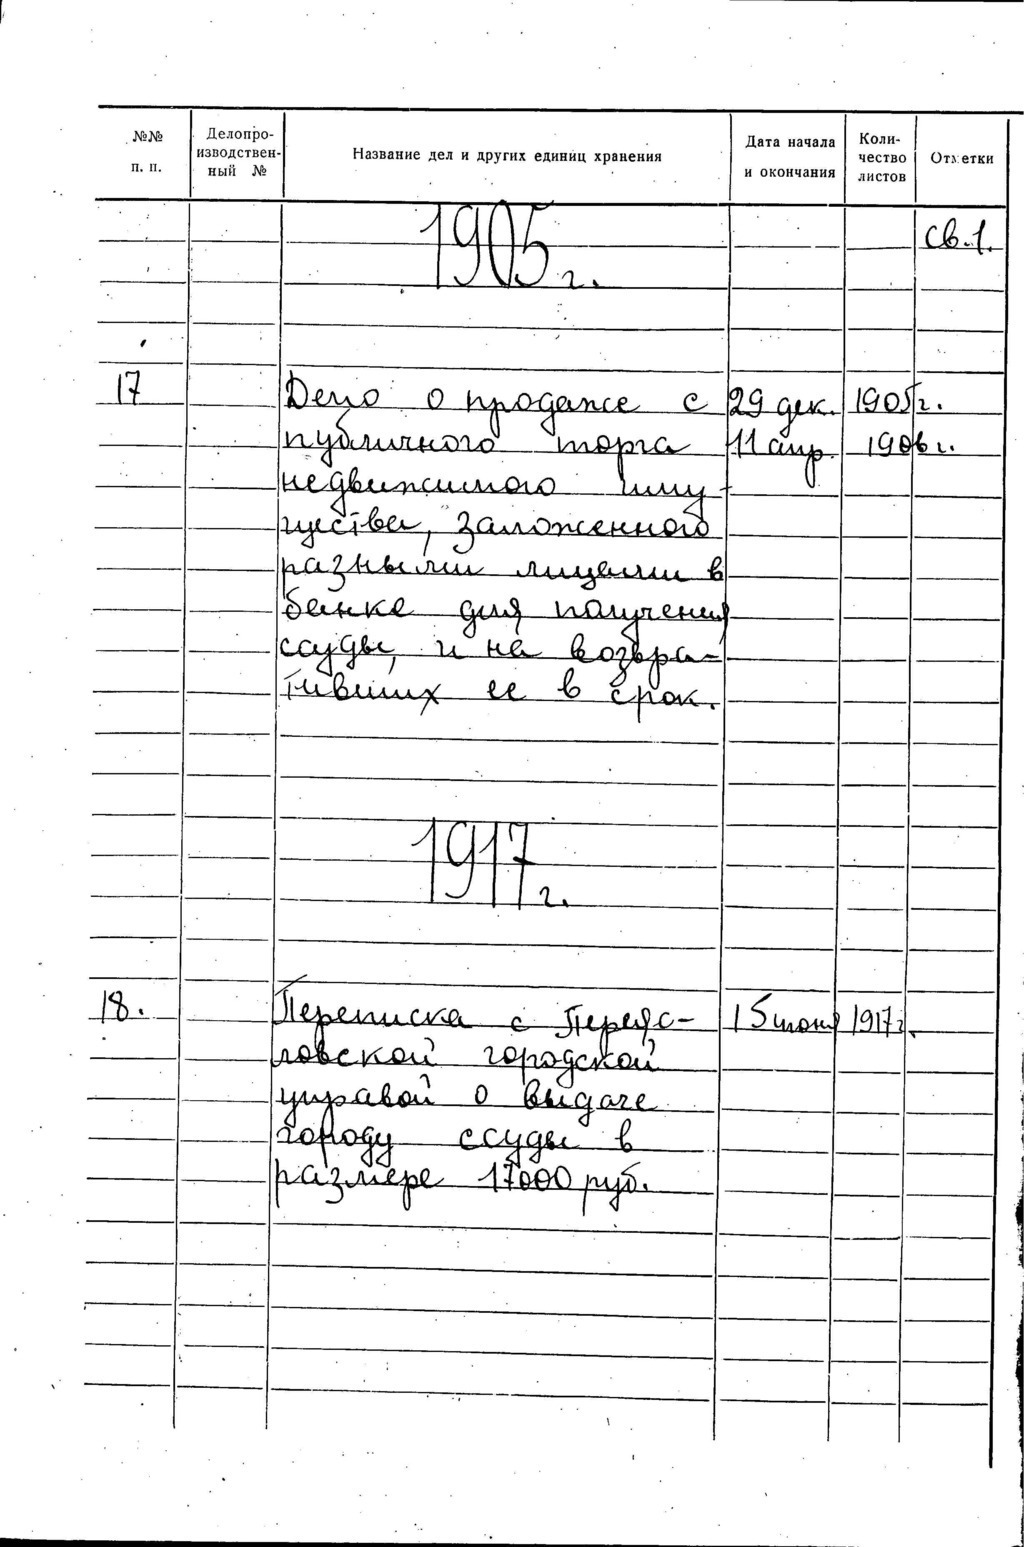 №№ п. п. Делопроизводственный № Название дел и других единиц хранения Дата начала и окончания Количество листов Отметки
1905 г. св. 1.
17 Дело о продаже с 29 дек. 1905 г.
публичного торга 11 апр. 1906 г.
недвижимого иму-
щества, заложенного
разными лицами в
банке для получения
ссуды, и не возвра-
тивших ее в срок.
1917 г.
18. Переписка с Переяс- 15 июня 1917 г.
ловской городской
управой о выдаче
городу ссуды в
размере 17000 руб.